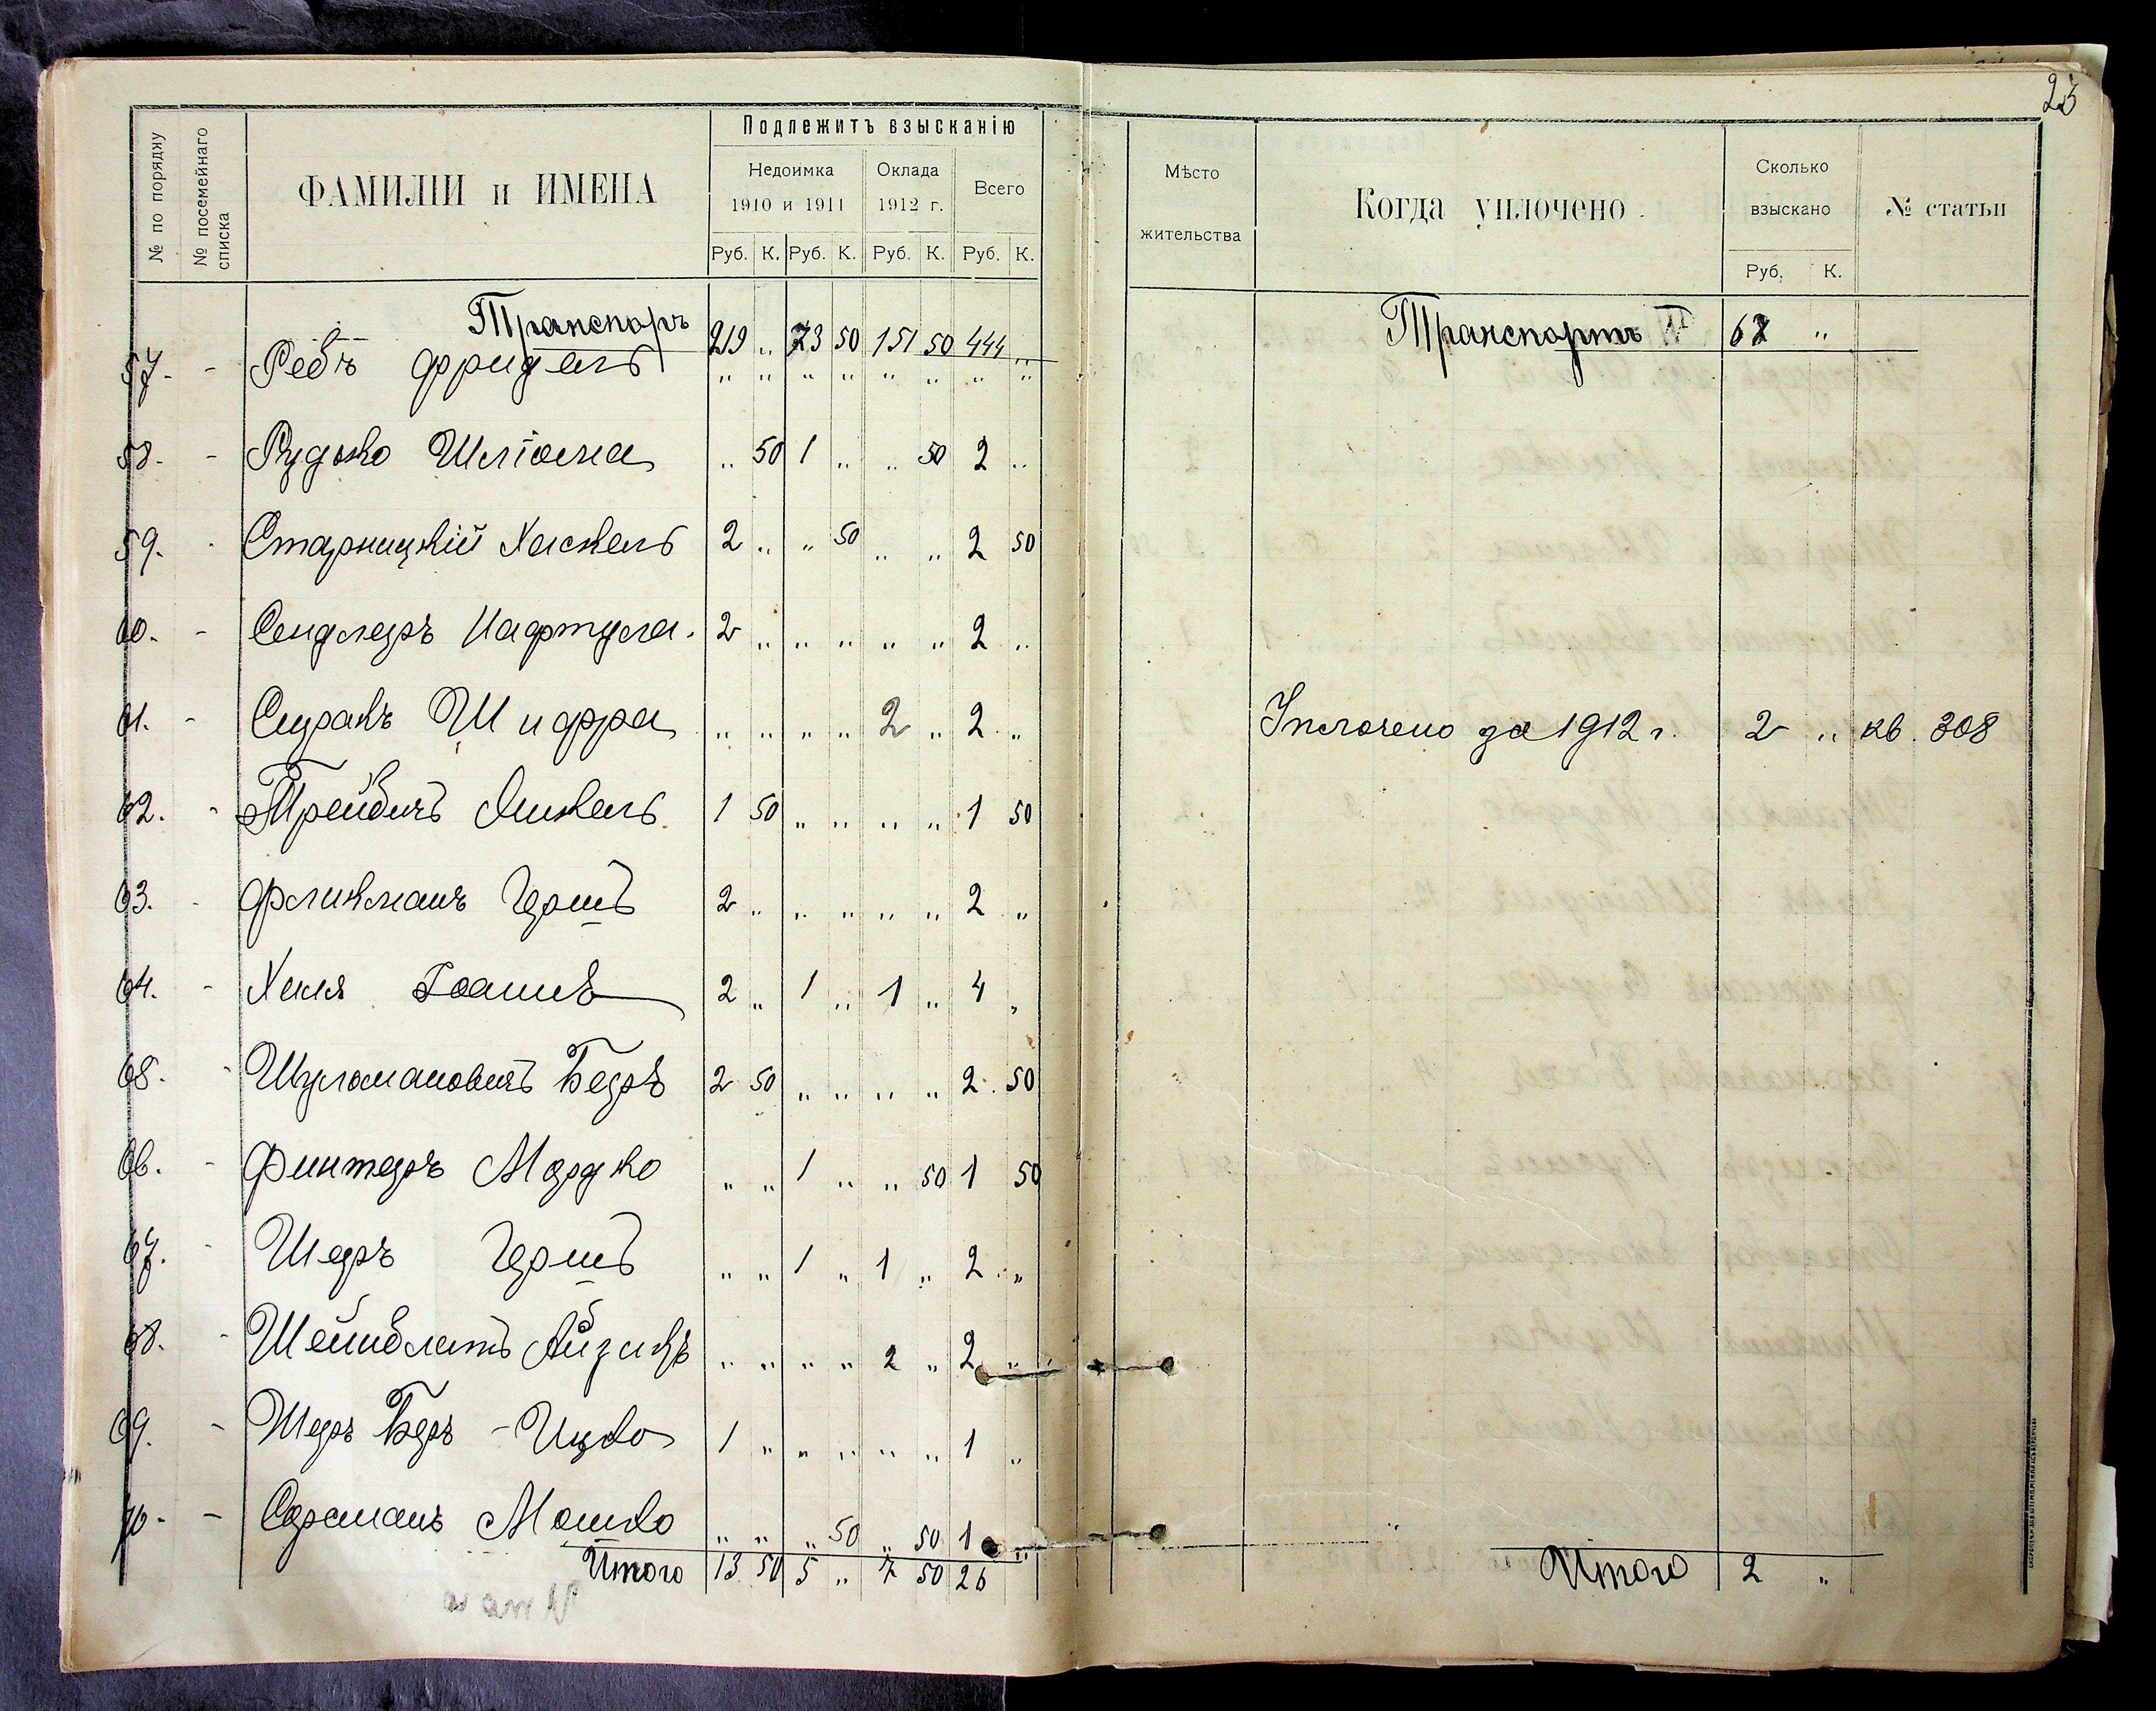 23
№ по порядку
№ посемейнаго списка
ФАМИЛІИ и ИМЕНА
Подлежитъ взысканію
Недоимка 1910 и 1911
Оклада 1912 г.
Всего
Руб. К. Руб. К. Руб. К. Руб. К.
Мѣсто жительства
Когда уплочено
Сколько взыскано
Руб. К.
№ статьи
Транспорт 219 „ 73 50 151 50 444 „
Транспортъ 62 „
57. - Ребъ Фридель „ „ „ „ „ „ „ „
58. - Рудько Шліома „ 50 1 „ „ 50 2 „
59. - Старницкій Хаскель 2 „ „ 50 „ „ 2 50
60. - Сендлеръ Нафтула. 2 „ „ „ „ „ 2 „
61. - Сиракъ Шифра „ „ „ „ 2 „ 2 „ Уплочено за 1912 г. 2 „ кв. 308
62. - Трейбичъ Янкель 1 50 „ „ „ „ 1 50
63. - Фликманъ Гершъ 2 „ „ „ „ „ 2 „
64. - Хиля 2 „ 1 „ 1 „ 4 „
65. - Шуломановичъ Беръ 2 50 „ „ „ „ 2 50
66. - Финтеръ Мордко „ „ 1 „ „ 50 1 50
67. - Шеръ Гершъ „ „ 1 „ 1 „ 2 „
68. - Шейнблатъ Айзикъ „ „ „ „ 2 „ 2 „
69. - Шеръ Беръ-Ицко 1 „ „ „ „ „ 1 „
70. - Мошко „ „ „ 50 „ 50 1 „
Итого 13 50 5 „ 7 50 26
Итого 2 „